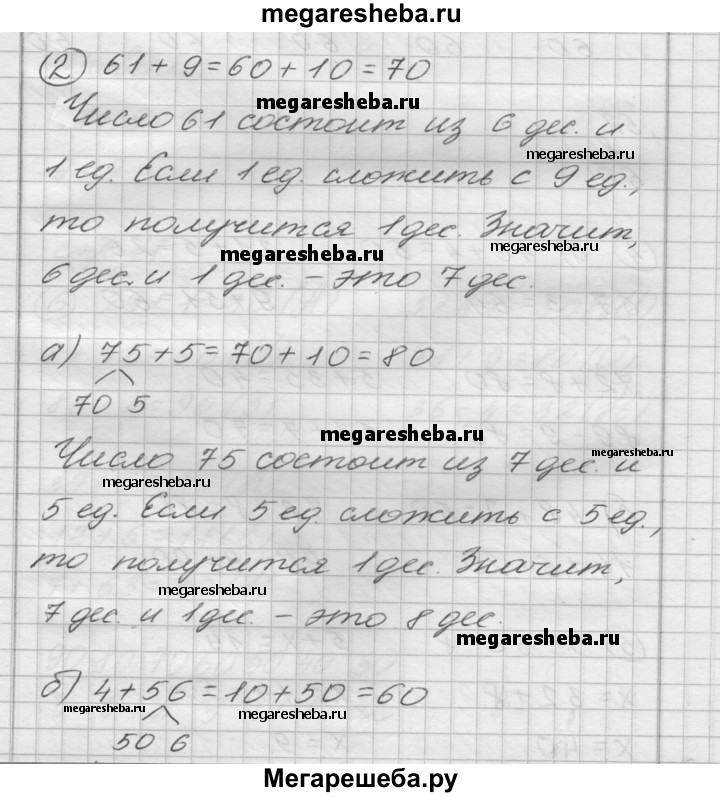 megaresheba.ru
2 61 + 9 = 60 + 10 = 70
megaresheba.ru
Число 61 состоит из 6 дес. и
megaresheba.ru
1 ед. Если 1 ед. сложить с 9 ед.,
то получится 1 дес. Значит,
megaresheba.ru
megaresheba.ru
6 дес. и 1 дес. – это 7 дес.
а) 75 + 5 = 70 + 10 = 80
70 5
megaresheba.ru
Число 75 состоит из 7 дес. и
megaresheba.ru
megaresheba.ru
5 ед. Если 5 ед. сложить с 5 ед.,
то получится 1 дес. Значит,
megaresheba.ru
7 дес. и 1 дес. – это 8 дес.
megaresheba.ru
б) 4 + 56 = 10 + 50 = 60
megaresheba.ru
megaresheba.ru
50 6
Мегарешеба.ру